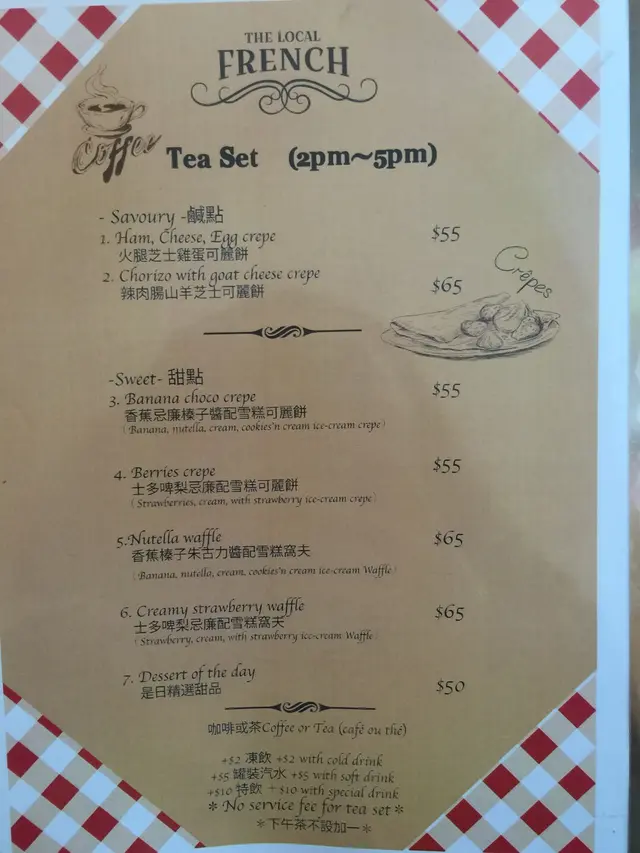 THE LOCAL
FRENCH
Coffee
Tea Set (2pm~5pm)
- Savoury -鹹點
1. Ham, Cheese, Egg crepe $55
火腿芝士雞蛋可麗餅
2. Chorizo with goat cheese crepe $65
辣肉腸山羊芝士可麗餅
Crêpes
-Sweet- 甜點
3. Banana choco crepe $55
香蕉忌廉榛子醬配雪糕可麗餅
( Banana, nutella, cream, cookies'n cream ice-cream crepe)
4. Berries crepe $55
士多啤梨忌廉配雪糕可麗餅
( Strawberries, cream, with strawberry ice-cream crepe)
5.Nutella waffle $65
香蕉榛子朱古力醬配雪糕窩夫
( Banana, nutella, cream, cookies'n cream ice-cream Waffle)
6. Creamy strawberry waffle $65
士多啤梨忌廉配雪糕窩夫
( Strawberry, cream, with strawberry ice-cream Waffle)
7. Dessert of the day $50
是日精選甜品
咖啡或茶Coffee or Tea (café ou thé)
+$2 凍飲 +$2 with cold drink
+$5 罐裝汽水 +$5 with soft drink
+$10 特飲 + $10 with special drink
* No service fee for tea set *
*下午茶不設加一*